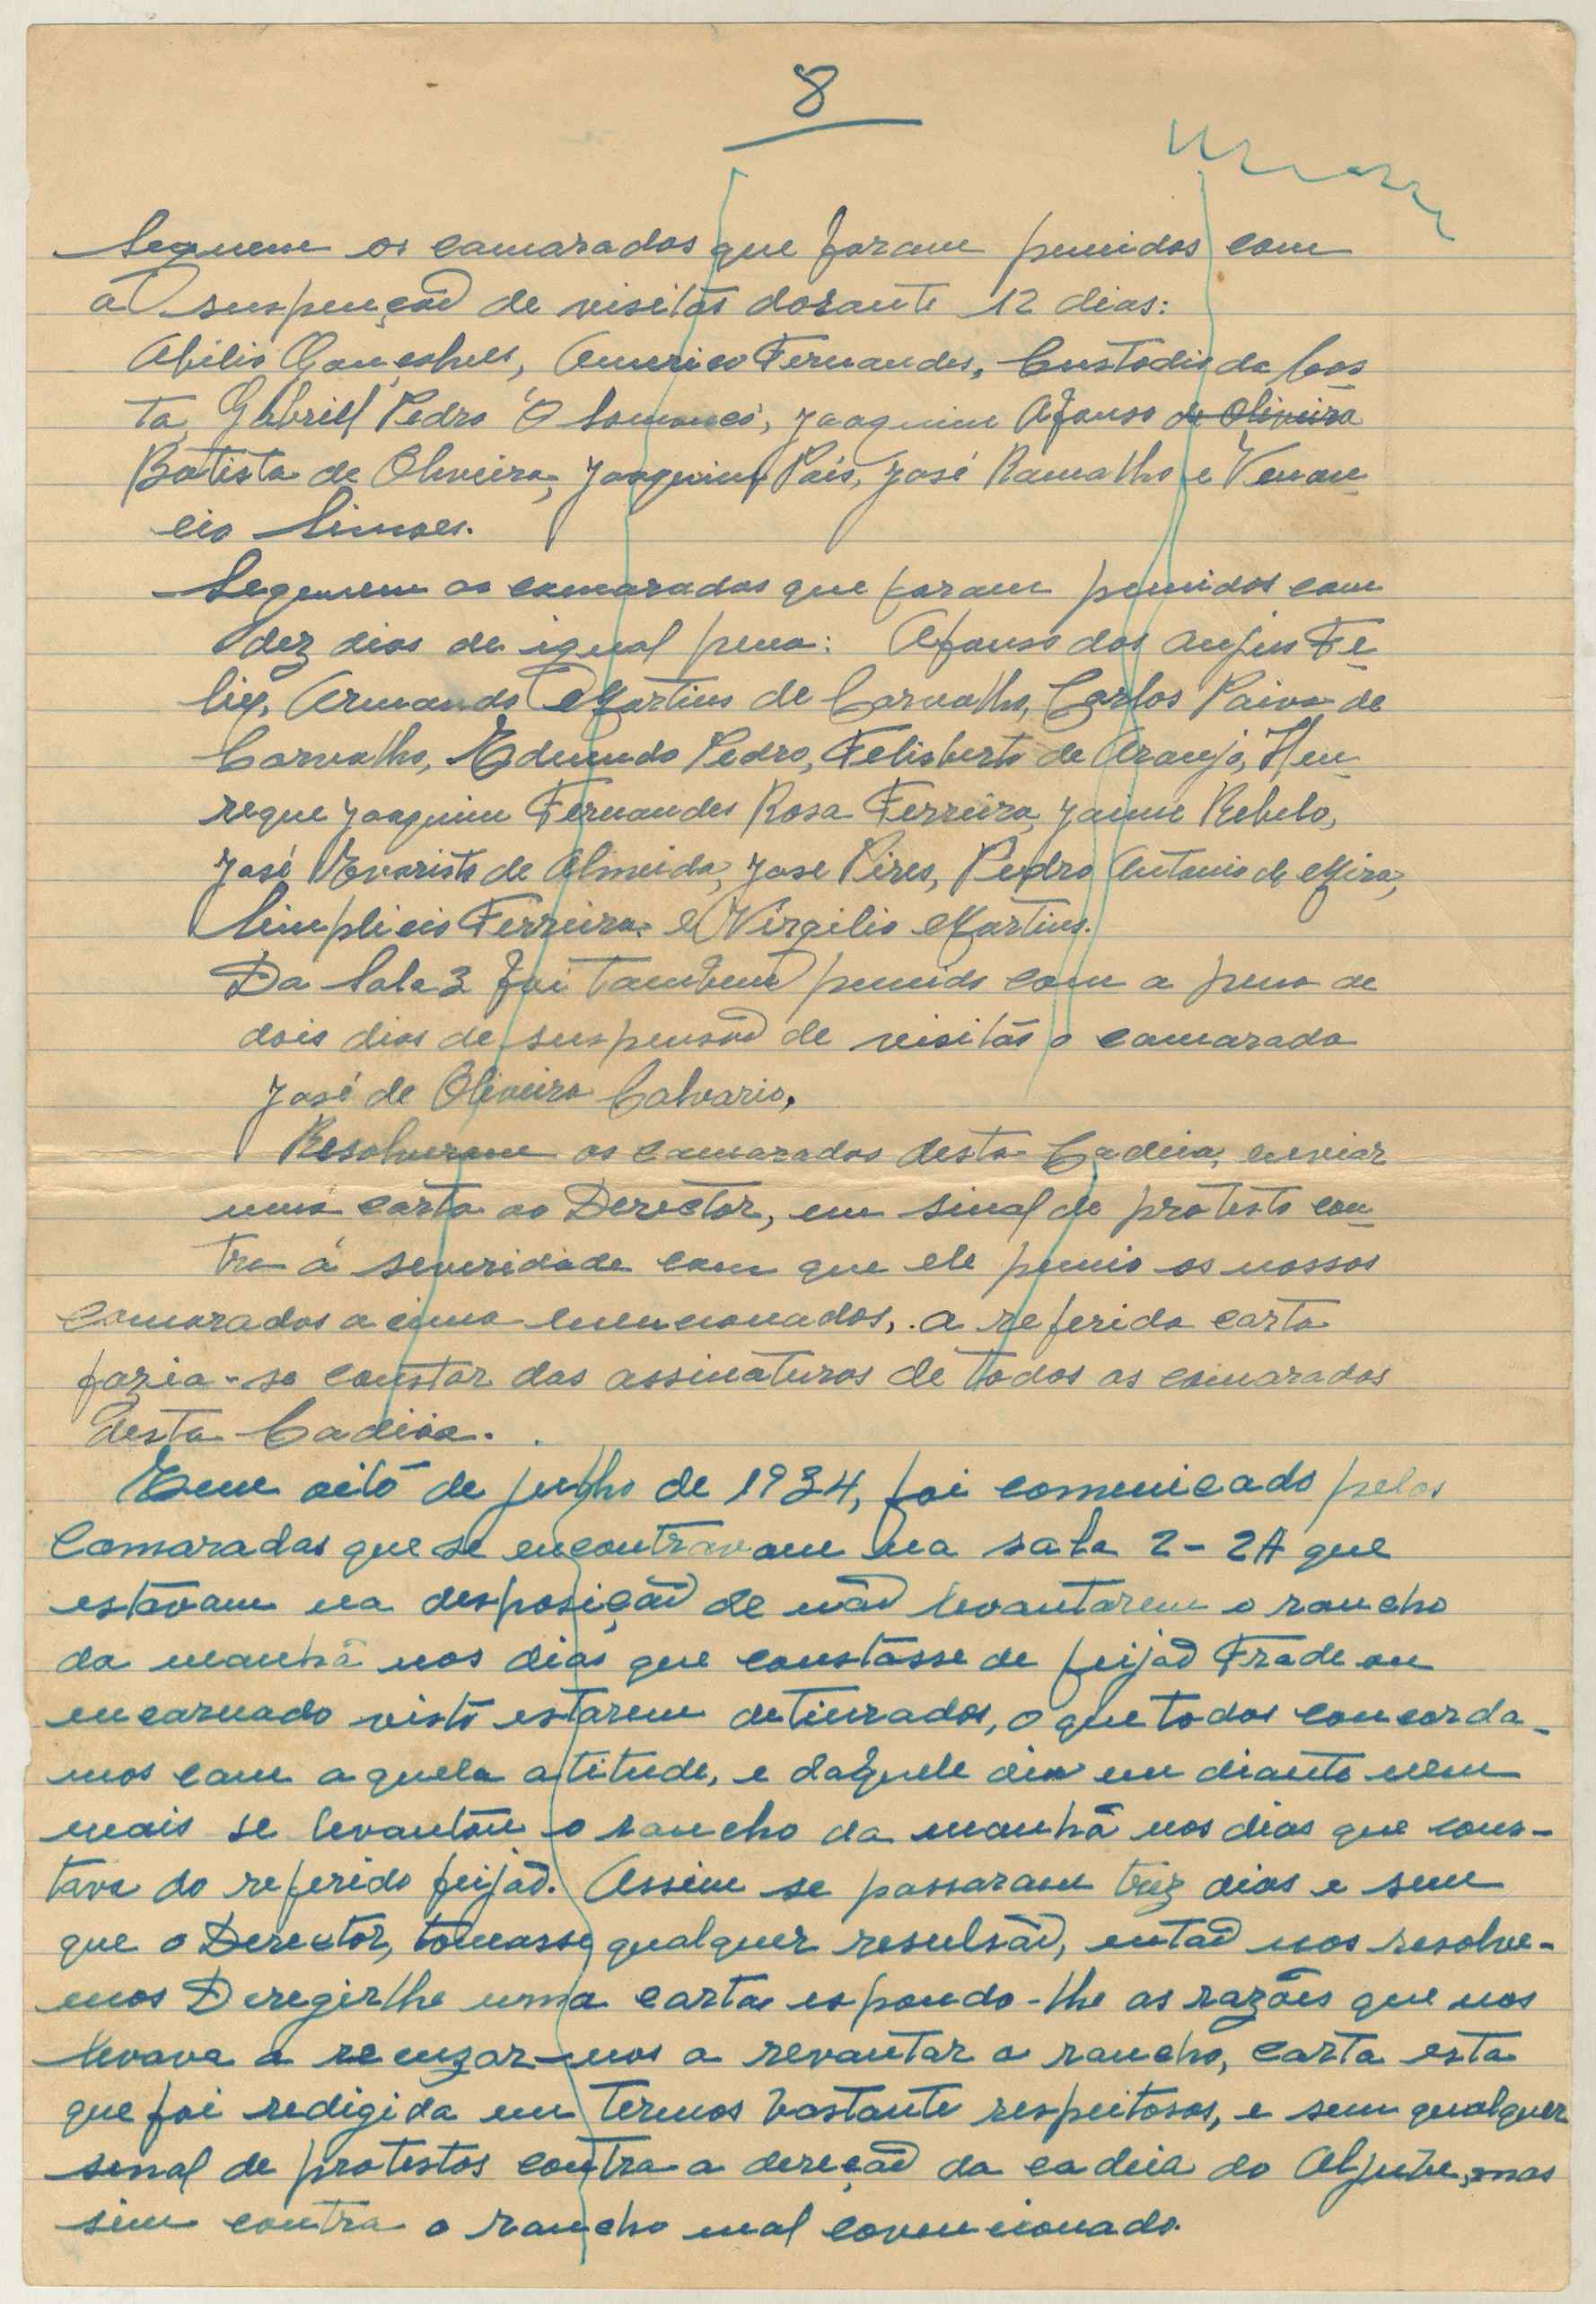 8
Seguem os camaradas que foram punidos com
a suspenção de visitas dorante 12 dias:
Abilio Gonçalves, Americo Fernandes, Custodio da Cos
ta, Gabriell Pedro, Joaquim Afonso de Oliveira
Batista de Oliveira, Joaquim Pais, José Ramalho e Venan-
cio Simoes.
Seguem os camaradas que foram punidos com
dez dias de igual pena: Afonso dos Anjos Fe-
lix, Armando Martins de Carvalho, Carlos Paiva de
Carvalho, Edmundo Pedro, Felisberto de Araujo, Hen-
reque Joaquim Fernandes Rosa Ferreira, Jaime Rebelo,
José Evaristo de Almeida, Jose Pires, Pedro Antonio de Mira,
Simplicio Ferreira e Virgilio Martins.
Da Sala 3 foi tambem punido com a pena de
dois dias de suspensão de visitas o camarada
José de Oliveira Calvario,
Resolveram os camaradas desta Cadeia, enviar
uma carta ao Derector, em sinal de protesto con-
tra á severidade com que ele punio os nossos
camaradas acima mencionados, a referida carta
fazia-se constar das assinaturas de todos os camaradas
desta Cadeia.
Em oito de julho de 1934, foi comunicado pelos
Camaradas que se encontravam na sala 2-2A que
estavam na desposição de não levantarem o rancho
da manhã nos dias que constasse de feijão Frade ou
encarnado visto estarem detiurados, o que todos concorda-
mos com aquela atitude, e daquele dia em diante nem
mais se levantou o rancho da manhã nos dias que cons-
tava do referido feijão. Assim se passaram trez dias e sem
que o Derector, tomasse qualquer resulsão, então nos resolve-
mos Deregirlhe uma carta espondo-lhe as razões que nos
levava a recuzar-nos a revantar o rancho, carta esta
que foi redigida em termos bastante respeitosos, e sem qualquer
senal de protestos contra a dereção da cadeia do Aljube, mas
sim contra o rancho mal covencionado.